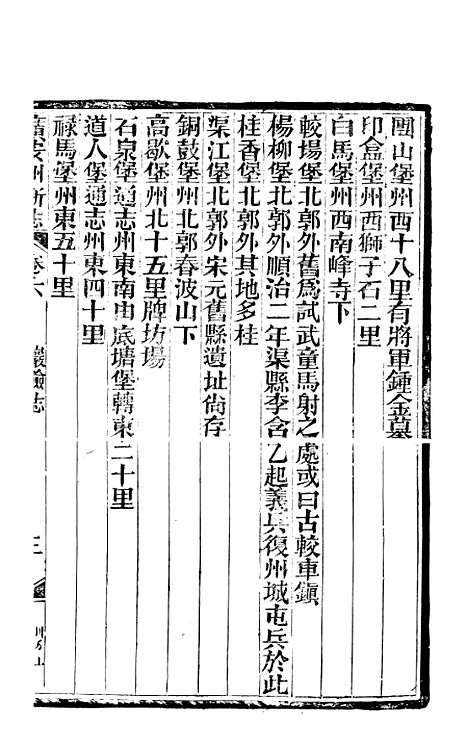 團山堡州西十八里有將軍鍾金墓
印盒堡州西獅子石二里
白馬堡州西南峰寺下
較場堡北郭外舊爲試武童馬射之處或曰古較車鎮
楊柳堡北郭外順治二年渠縣李含乙起義兵復州城屯兵於此
桂香堡北郭外其地多桂
渠江堡北郭外宋元舊縣遺址尙存
銅鼓堡州北郭春波山下
高歇堡州北十五里牌坊場
石泉堡通志州東南由底塘堡轉東二十里
道人堡通志州東四十里
祿馬堡州東五十里
廣安州新志 卷六 巖險志 三